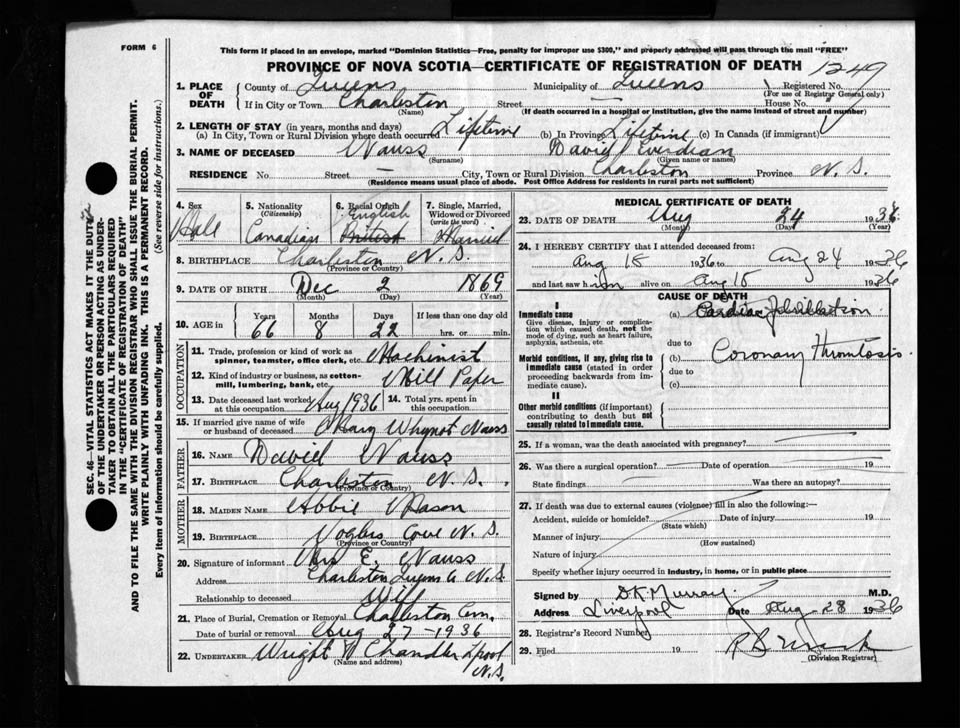 FORM 6
This form if placed in an envelope, marked "Dominion Statistics—Free, penalty for improper use $300," and properly addressed will pass through the mail "FREE"
PROVINCE OF NOVA SCOTIA—CERTIFICATE OF REGISTRATION OF DEATH 1249
1. PLACE OF DEATH County of Queens Municipality of Queens Registered No.
(For use of Registrar General only)
If in City or Town Charleston Street — House No. "
(Name) (If death occurred in a hospital or institution, give the name instead of street and number)
2. LENGTH OF STAY (in years, months and days)
(a) In City, Town or Rural Division where death occurred Lifetime (b) In Province Lifetime (c) In Canada (if immigrant)
3. NAME OF DECEASED Nauss David
(Surname) (Given name or names)
RESIDENCE No. Street — City, Town or Rural Division Charleston Province N. S.
(Residence means usual place of abode. Post Office Address for residents in rural parts not sufficient)
4. Sex 5. Nationality (Citizenship) 6. Racial Origin 7. Single, Married, Widowed or Divorced (write the word)
English
Male Canadian British Married
8. BIRTHPLACE Charleston N. S.
(Province or Country)
9. DATE OF BIRTH Dec 2 1869
(Month) (Day) (Year)
10. AGE in Years Months Days If less than one day old
66 8 22 hrs. or min.
OCCUPATION
11. Trade, profession or kind of work as spinner, teamster, office clerk, etc. Machinist
12. Kind of industry or business, as cotton-mill, lumbering, bank, etc. Mill Paper
13. Date deceased last worked at this occupation Aug 1936 14. Total yrs. spent in this occupation
15. If married give name of wife or husband of deceased Mary Whynot Nauss
FATHER
16. NAME David Nauss
17. BIRTHPLACE Charleston N. S.
(Province or Country)
MOTHER
18. MAIDEN NAME Abbie Mason
19. BIRTHPLACE Voglers Cove N. S.
(Province or Country)
20. Signature of informant Mrs E. Nauss
Address Charleston Queens Co N. S.
Relationship to deceased Wife
21. Place of Burial, Cremation or Removal Charleston Cem.
Date of burial or removal Aug 27-1936
22. UNDERTAKER Wright & Chandler Lpool
(Name and address) N.S.
MEDICAL CERTIFICATE OF DEATH
23. DATE OF DEATH Aug 24 1936
(Month) (Day) (Year)
24. I HEREBY CERTIFY that I attended deceased from:
Aug 18 1936 to Aug 24 1936
and last saw him alive on Aug 18 1936
CAUSE OF DEATH
I
Immediate cause
Give disease, injury or complication which caused death, not the mode of dying, such as heart failure, asphyxia, asthenia, etc.
(a) Cardiac Fibrillation
due to
Morbid conditions, if any, giving rise to immediate cause (stated in order proceeding backwards from immediate cause).
(b) Coronary Thrombosis.
due to
(c)
II
Other morbid conditions (if important) contributing to death but not causally related to immediate cause.
25. If a woman, was the death associated with pregnancy?
26. Was there a surgical operation? Date of operation 19
State findings Was there an autopsy?
27. If death was due to external causes (violence) fill in also the following:—
Accident, suicide or homicide? Date of injury 19
(State which)
Manner of injury
(How sustained)
Nature of injury
Specify whether injury occurred in industry, in home, or in public place
Signed by D.K. Murray. M.D.
Address Liverpool Date Aug-28 1936
28. Registrar's Record Number
29. Filed 19
(Division Registrar)
SEC. 46—VITAL STATISTICS ACT MAKES IT THE DUTY OF THE UNDERTAKER OR PERSON ACTING AS UNDERTAKER TO OBTAIN ALL THE PARTICULARS REQUIRED IN THE "CERTIFICATE OF REGISTRATION OF DEATH" AND TO FILE THE SAME WITH THE DIVISION REGISTRAR WHO SHALL ISSUE THE BURIAL PERMIT.
WRITE PLAINLY WITH UNFADING INK. THIS IS A PERMANENT RECORD.
Every item of information should be carefully supplied. (See reverse side for instructions.)